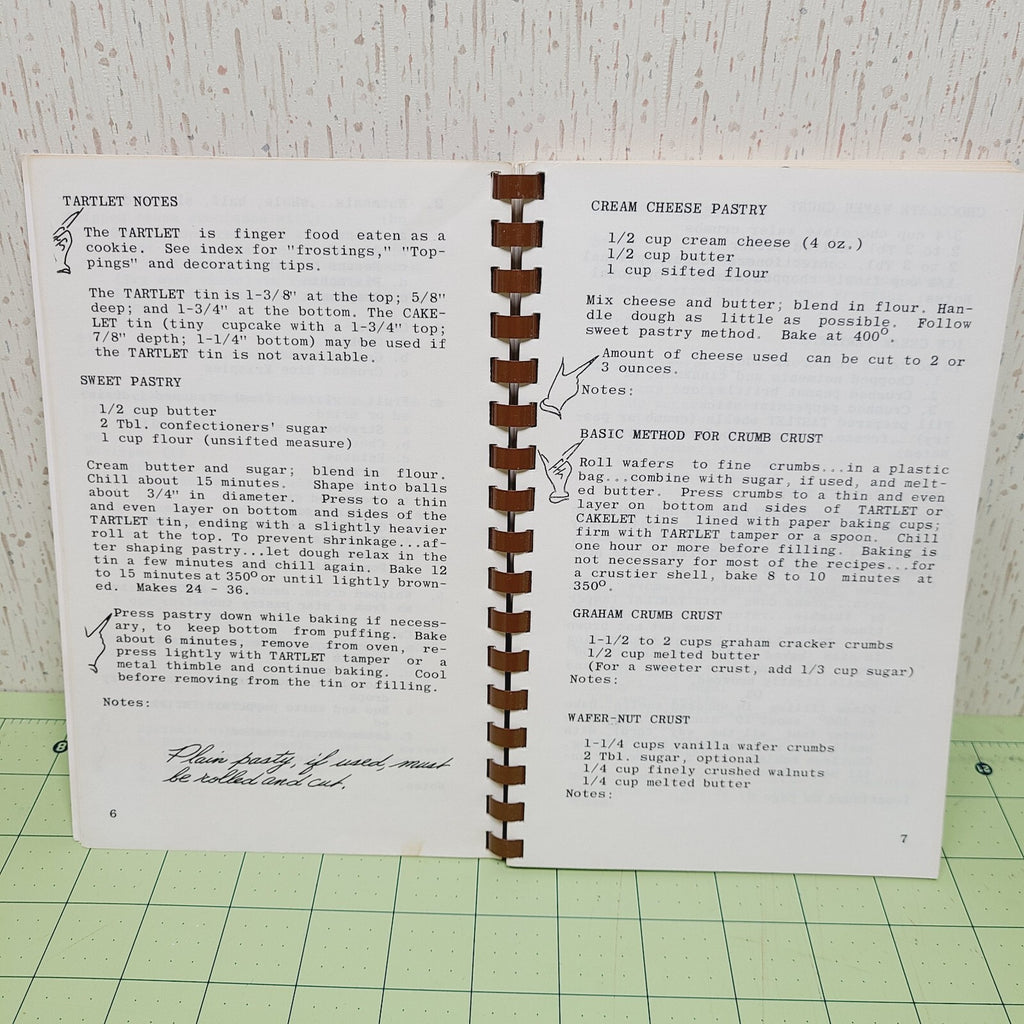 TARTLET NOTES
The TARTLET is finger food eaten as a
cookie. See index for "frostings," "Top-
pings" and decorating tips.
The TARTLET tin is 1-3/8" at the top; 5/8"
deep; and 1-3/4" at the bottom. The CAKE-
LET tin (tiny cupcake with a 1-3/4" top;
7/8" depth; 1-1/4" bottom) may be used if
the TARTLET tin is not available.
SWEET PASTRY
1/2 cup butter
2 Tbl. confectioners' sugar
1 cup flour (unsifted measure)
Cream butter and sugar; blend in flour.
Chill about 15 minutes. Shape into balls
about 3/4" in diameter. Press to a thin
and even layer on bottom and sides of the
TARTLET tin, ending with a slightly heavier
roll at the top. To prevent shrinkage...af-
ter shaping pastry...let dough relax in the
tin a few minutes and chill again. Bake 12
to 15 minutes at 350° or until lightly brown-
ed. Makes 24 - 36.
Press pastry down while baking if necess-
ary, to keep bottom from puffing. Bake
about 6 minutes, remove from oven, re-
press lightly with TARTLET tamper or a
metal thimble and continue baking. Cool
before removing from the tin or filling.
Notes:
Plain pasty, if used, must
be rolled and cut.
6
CREAM CHEESE PASTRY
1/2 cup cream cheese (4 oz.)
1/2 cup butter
1 cup sifted flour
Mix cheese and butter; blend in flour. Han-
dle dough as little as possible. Follow
sweet pastry method. Bake at 400°.
Amount of cheese used can be cut to 2 or
3 ounces.
Notes:
BASIC METHOD FOR CRUMB CRUST
Roll wafers to fine crumbs...in a plastic
bag...combine with sugar, if used, and melt-
ed butter. Press crumbs to a thin and even
layer on bottom and sides of TARTLET or
CAKELET tins lined with paper baking cups;
firm with TARTLET tamper or a spoon. Chill
one hour or more before filling. Baking is
not necessary for most of the recipes...for
a crustier shell, bake 8 to 10 minutes at
350°.
GRAHAM CRUMB CRUST
1-1/2 to 2 cups graham cracker crumbs
1/2 cup melted butter
(For a sweeter crust, add 1/3 cup sugar)
Notes:
WAFER-NUT CRUST
1-1/4 cups vanilla wafer crumbs
2 Tbl. sugar, optional
1/4 cup finely crushed walnuts
1/4 cup melted butter
Notes:
7